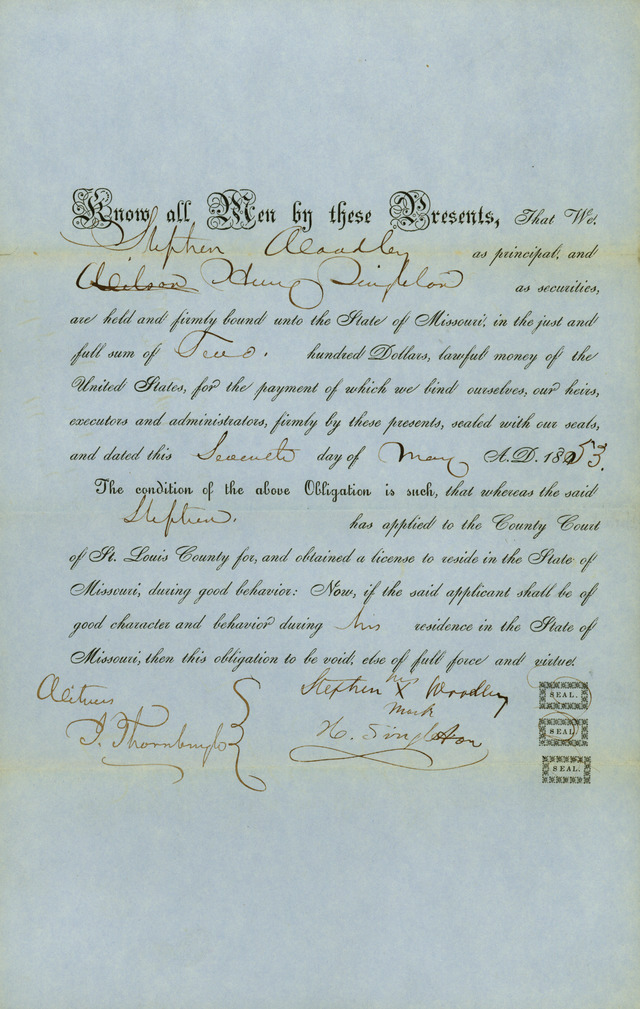 Know all Men by these Presents, That We,
Stephen Woodley as principal, and
Wilson Henry Singleton as securities,
are held and firmly bound unto the State of Missouri, in the just and
full sum of Two. hundred Dollars, lawful money of the
United States, for the payment of which we bind ourselves, our heirs,
executors and administrators, firmly by these presents, sealed with our seals,
and dated this Seventh day of May A.D. 1853.
The condition of the above Obligation is such, that whereas the said
Stephen. has applied to the County Court
of St. Louis County for, and obtained a license to reside in the State of
Missouri, during good behavior: Now, if the said applicant shall be of
good character and behavior during his residence in the State of
Missouri, then this obligation to be void, else of full force and virtue.
Witness
J. Thornburgh
Stephen his X Woodley
mark
H. Singleton
SEAL.
SEAL.
SEAL.